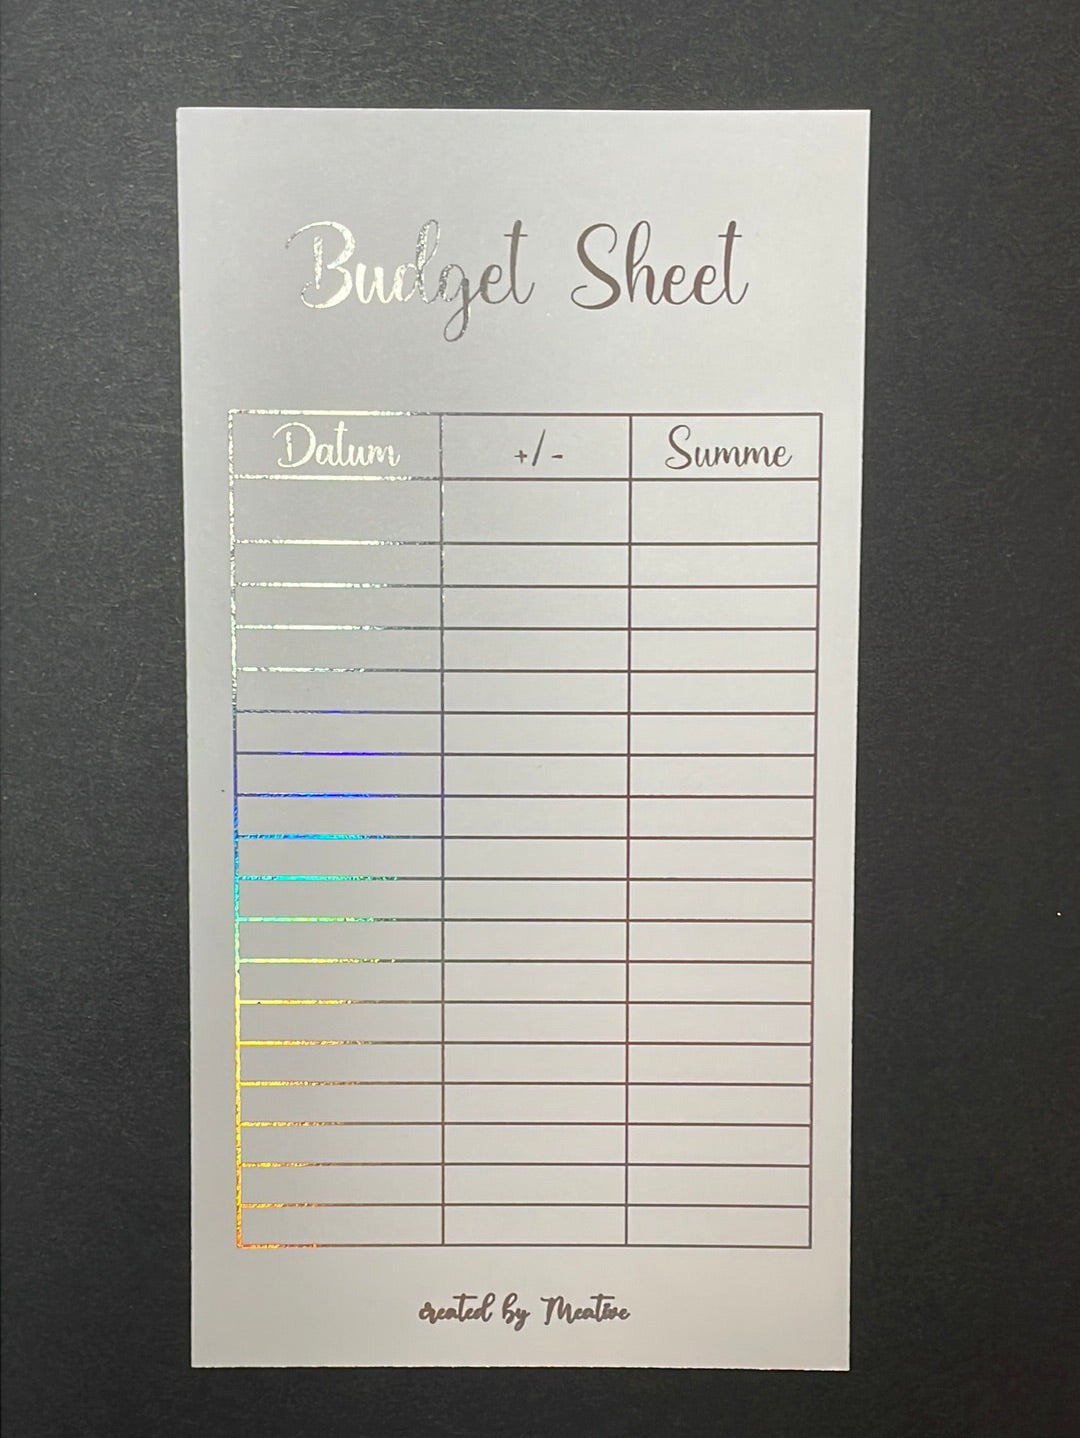 Budget Sheet
Datum +/- Summe
created by Meative